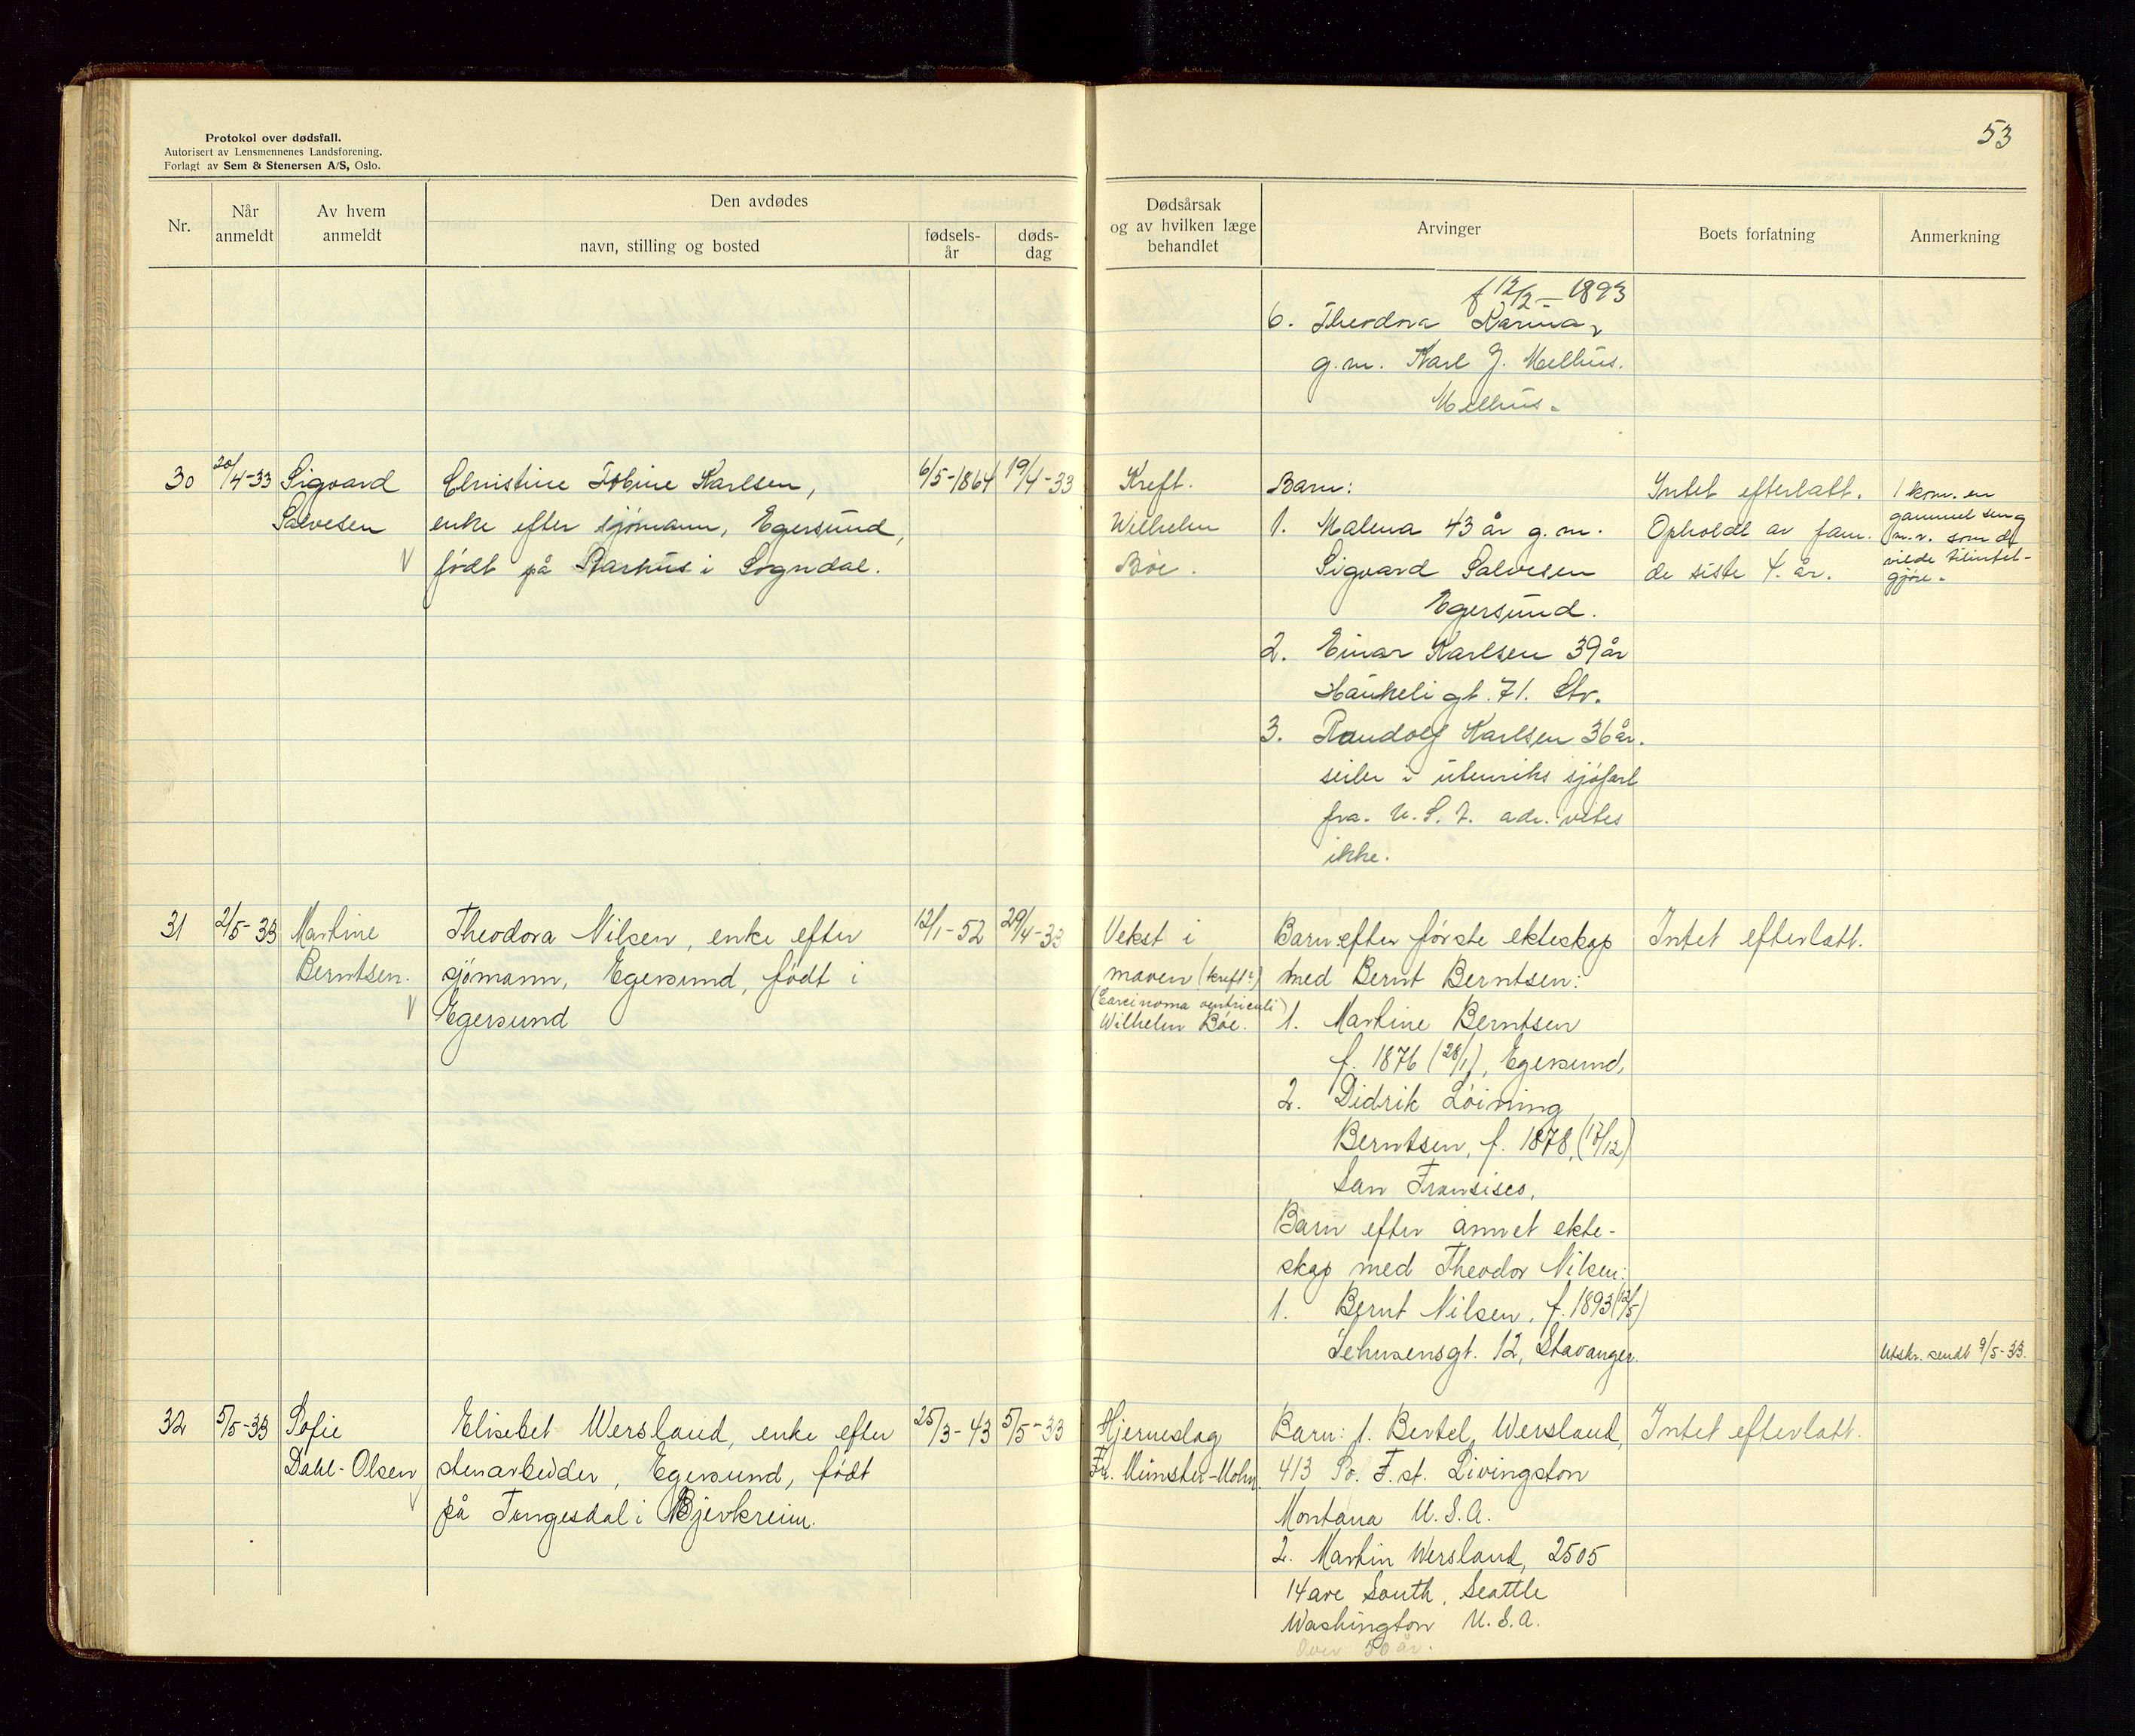 Protokol over dødsfall.
Autorisert av Lensmennenes Landsforening.
Forlagt av Sem & Stenersen A/S, Oslo.
53
Nr.
Når anmeldt
Av hvem anmeldt
Den avdødes
navn, stilling og bosted
fødselsår
dødsdag
Dødsårsak og av hvilken læge behandlet
Arvinger
Boets forfatning
Anmerkning
f 12/2-1893
6. Theodora Karina,
g.m. Karl J. Mellhus.
Mellhus.
30
20/4-33
Sigvard
Salvesen
Christine Tobine Karlsen,
enke efter sjømann, Egersund,
født på Rarhus i Sogndal.
6/5-1864
19/4-33
Kreft.
Wilhelm
Bøe.
Barn:
1. Malena 43 år g.m.
Sigvard Salvesen
Egersund.
2. Einar Karlsen 39 år
Haukeli gt. 71. Stv.
3. Randolf Karlsen 36 år.
seiler i utenriks sjøfart
fra. U.S.A. adr. vites
ikke.
Intet efterlatt.
Opholdt av fam.
de siste 4. år.
1 kom. en
gammel seng
m.v. som de
vilde tilintet-
gjøre.
31
2/5-33
Martine
Berntsen.
Theodora Nilsen, enke efter
sjømann, Egersund, født i
Egersund
12/1-52
29/4-33
Vekst i
maven (kreft?)
(Carcinoma ventriculi)
Wilhelm Bøe.
Barn efter første ekteskap
med Bernt Berntsen:
1. Martine Berntsen
f. 1876 (28/1), Egersund,
2. Didrik Løining
Berntsen, f. 1878, (17/12)
San Fransisco,
Barn efter annet ekte-
skap med Theodor Nilsen:
1. Bernt Nilsen, f. 1893 (12/5)
Jehnsensgt. 12, Stavanger.
Intet efterlatt.
Utskr. sendt 9/5-33.
32
5/5-33
Sofie
Dahl-Olsen
Elisebet Wersland, enke efter
stenarbeider, Egersund, født
på Tengesdal i Bjerkreim.
25/3-43
5/5-33
Hjerneslag
Fr. Münster-Mohn.
Barn: 1. Bertel Wersland,
413 So. F. st. Livingston
Montana U.S.A.
2. Martin Wersland, 2505
14 ave South, Seattle
Washington U.S.A.
Over 50 år.
Intet efterlatt.